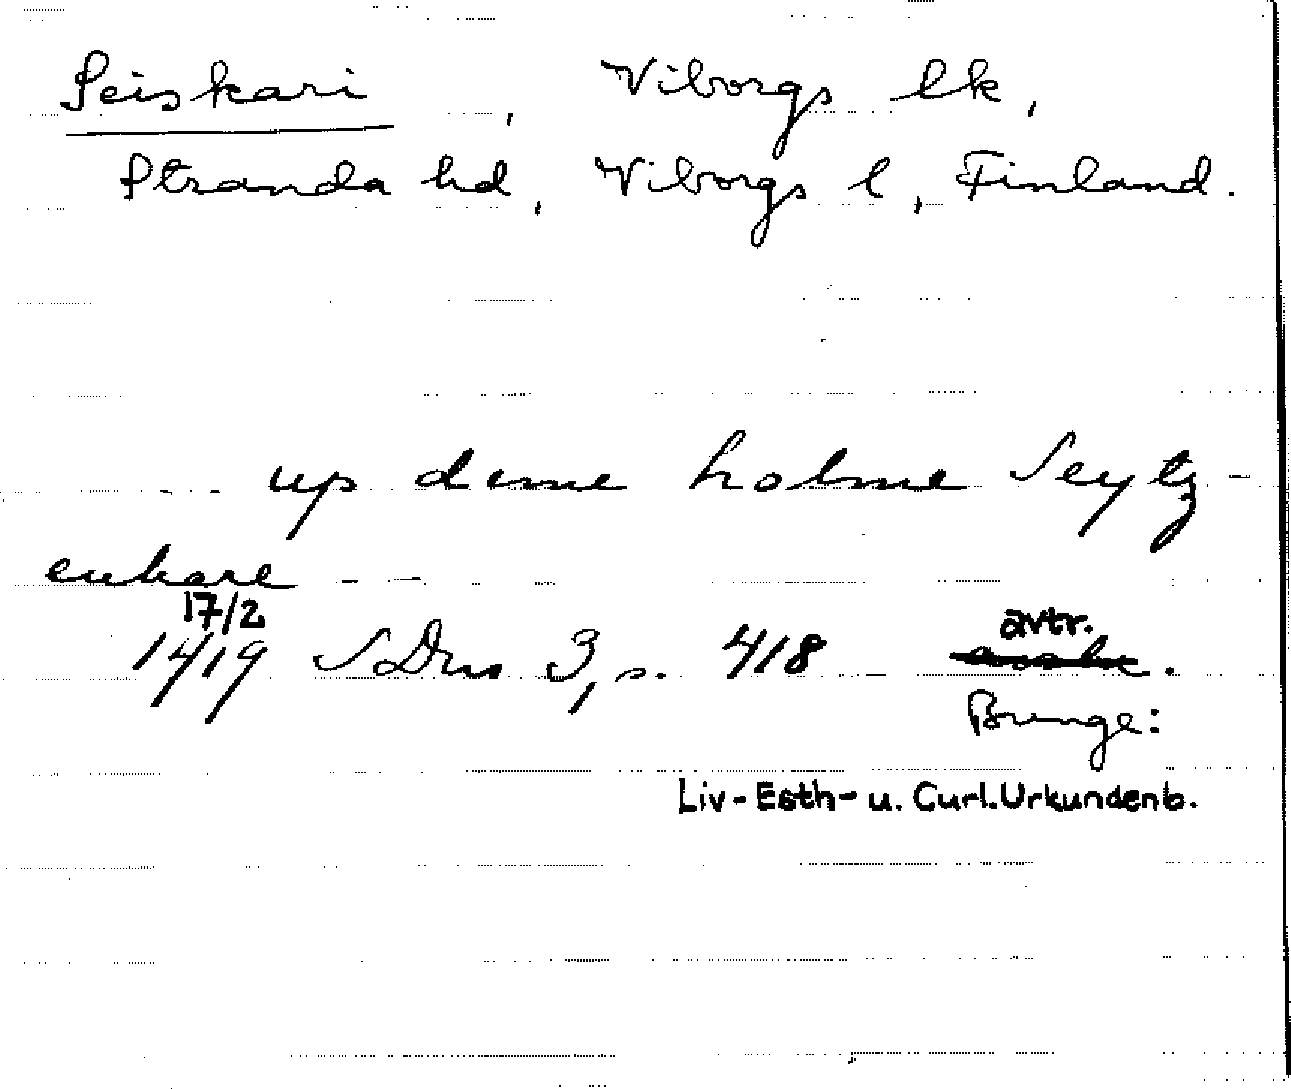 Seiskari, Viborgs lk,
Stranda hd, Viborgs l, Finland.
up deme holme Seytz-
enkare - —
17/2
1419 SDns 3, s. 418 avtr.
Bunge:
Liv-Esth- u. Curl. Urkundenb.